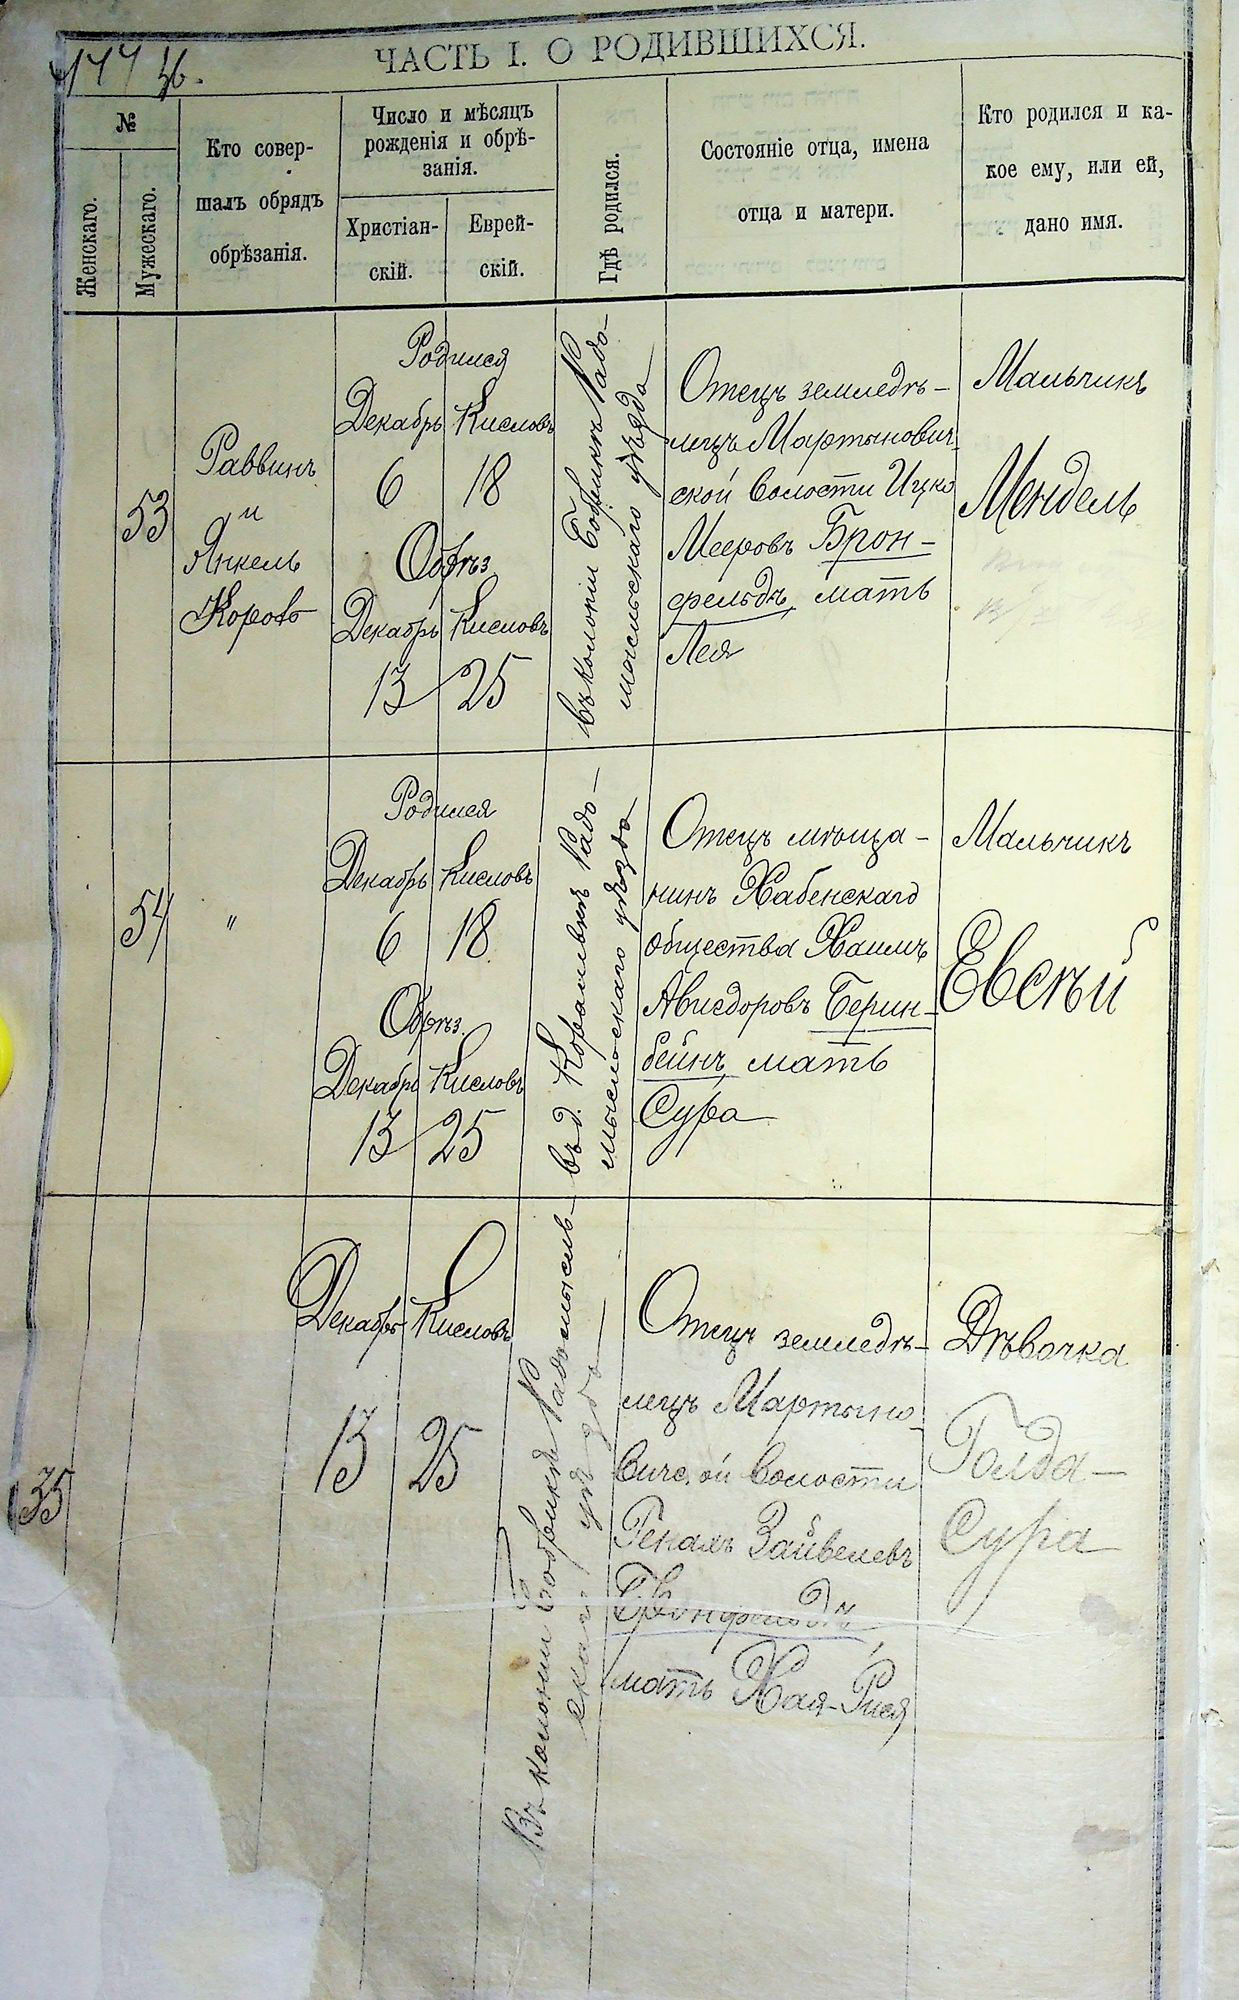 ЧАСТЬ I. О РОДИВШИХСЯ.
№
Женскаго.
Мужескаго.
Кто совер-
шалъ обрядъ
обрѣзанія.
Число и мѣсяцъ
рожденія и обрѣ-
занія.
Христіан-
скій.
Еврей-
скій.
Гдѣ родился.
Состояніе отца, имена
отца и матери.
Кто родился и ка-
кое ему, или ей,
дано имя.
53
Раввинъ
и
Янкель
Коровъ
Родился
Декабрь Кисловъ
6 18
Обрѣз
Декабрь Кисловъ
13 25
въ колоніи Бобрикѣ Радо-
мысльскаго уѣзда
Отецъ земледѣ-
лецъ Мартынович-
ской волости Ицко
Мееровъ Брон-
фельдъ, мать
Лея
Мальчикъ
Мендель
54
"
Родился
Декабрь Кисловъ
6 18
Обрѣз.
Декабрь Кисловъ
13 25
въ д. Радо-
мысльскаго уѣзда
Отецъ мѣща-
нинъ Хабенскаго
общества Хаимъ
Авигдоровъ Берин-
бейнъ, мать
Сура
Мальчикъ
Евсѣй
35
Декабрь Кисловъ
13 25
Въ колоніи Бобрикѣ Радомысль-
скаго уѣзда
Отецъ земледѣ-
лецъ Мартыно-
вичской волости
Зайвелевъ
Бронфельдъ,
мать Хая-Рися
Дѣвочка
Голда-
Сура